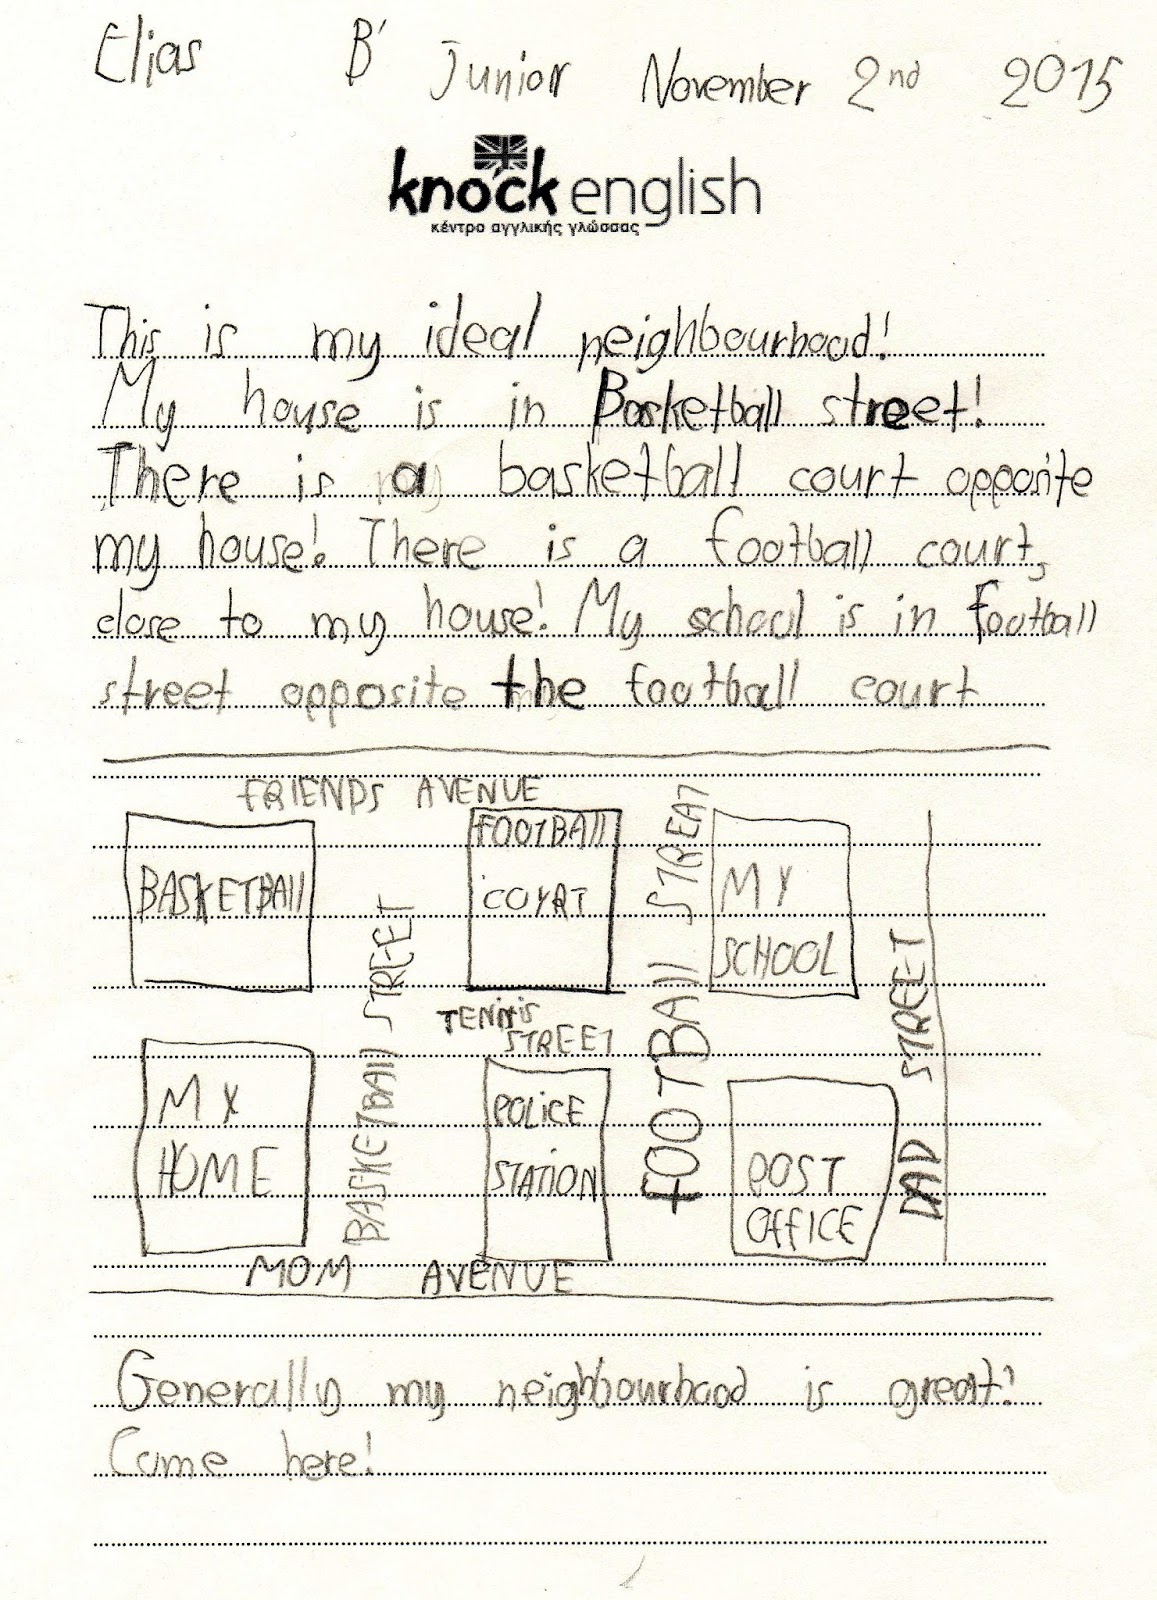 Elias B' Junior November 2nd 2015
knock english
κέντρο αγγλικής γλώσσας
This is my ideal neighbourhood!
My house is in Basketball street!
There is a basketball court opposite
my house! There is a football court,
close to my house! My school is in football
street opposite the football court
FRIENDS AVENUE
BASKETBALL
BASKETBALL STREET
FOOTBALL
COURT
FOOTBALL STREAT
MY
SCHOOL
TENNIS
STREET
MY
HOME
POLICE
STATION
POST
OFFICE
DAD STREET
MOM AVENUE
Generally my neighbourhood is great!
Come here!